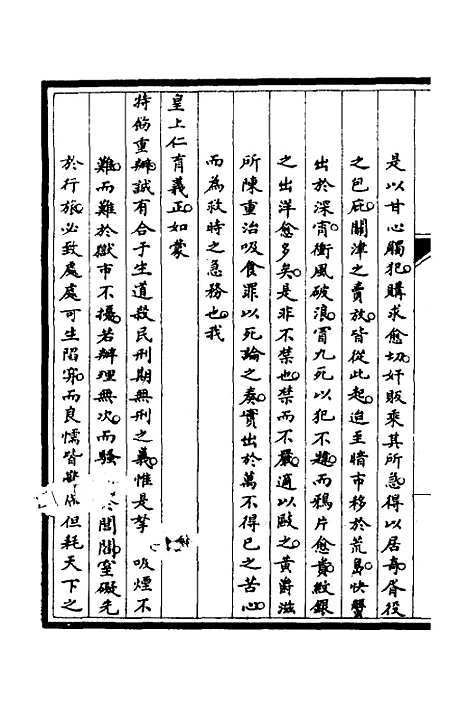 是以甘心觸犯購求愈切奸販乘其所急得以居奇胥役
之包庇關津之賣放皆從此起迫至暗市移於荒島快蟹
出於深宵衝風破浪冒九死以犯不韙而鴉片愈貴紋銀
之出洋愈多矣是非不禁也禁而不嚴適以敺之黃爵滋
所陳重治吸食罪以死論之奏實出於萬不得已之苦心
而為救時之急務也我
皇上仁育義正如蒙
特飭重辦誠有合于生道殺民刑期無刑之義惟是拏 吸煙不
難而難於獄市不擾若辦理無次而騷 閭閻窒礙先
於行旅必致處處可生陷穽而良懦皆 但耗天下之